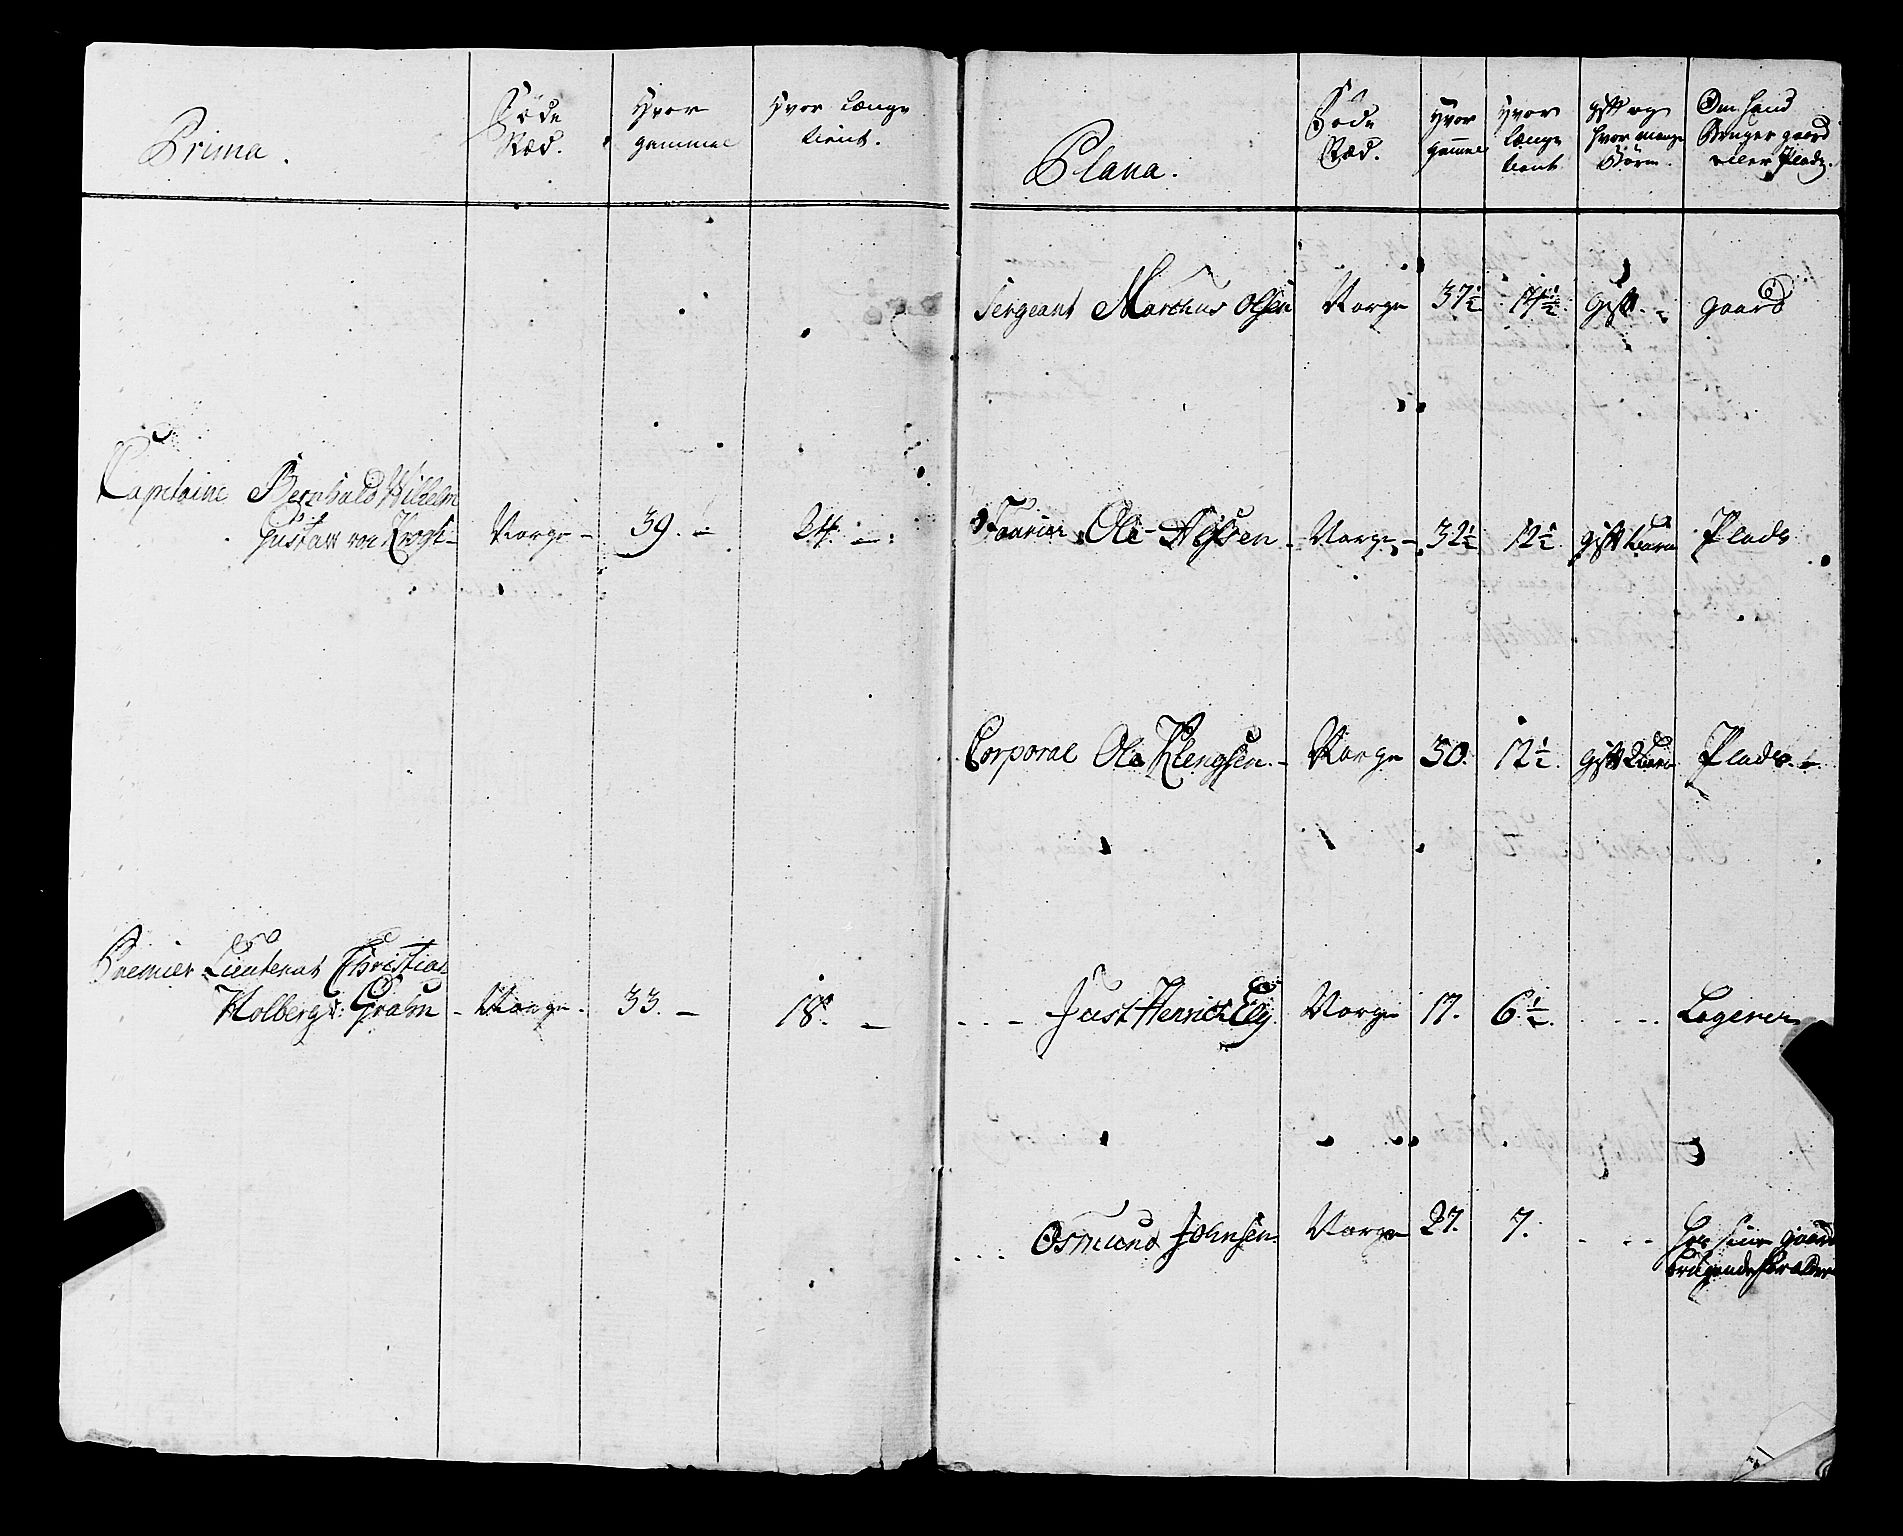 Prima.
Föde Stæd.
Hvor gammel
Hvor længe tient.
Capitaine Bernhald Wilhelm
Gustaw von Krogh - Norge - 39. - 24. -
Premier Lieutenant Christian
Holberg Gralm - Norge. 33. - 18. -
Plana.
Föde Stæd.
Hvor gammel
Hvor længe tient
gift og hvor mange Börn.
Om hand bruger gaard eller Plads.
Sergeant Marchus Olsen Norge 37½ 14½ Gift. - gaard
Fourier Ole Nilsen - Norge - 32½ 12½ gift 1 barn Plads
Corporal Ole Klengsen. - Norge 30. 12½. gift 2 barn Plads. -
- - - Just Henrich Ely Norge 17. 6½. - - - Logerer
- - - Osmund Johnsen Norge 27. 7. - - - hos sine gaard
brugende forældre